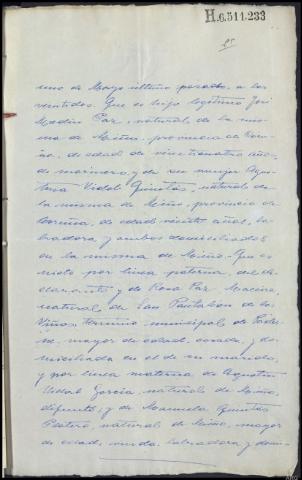 H.6.511.233
uno de Mayo último pasado, a las
veintidos. Que es hijo legítimo José
Medin Paz, natural de la mis
ma de Miño, provincia de Coru
ña, de edad de veinticuatro años,
de marinero, y de su mujer Agus
tina Vidal Quintas, natural de
la misma de Miño, provincia de
Coruña, de edad veinte años, la
bradora y ambos domiciliados
en la misma de Miño. Que es
nieto por línea paterna, del de
clarante y de Rosa Paz
natural, de San Pantaleon de las
Viñas término municipal de Pader
ne, mayor de edad, casada, y do
miciliada en el de su marido,
y por línea materna de Agustin
Vidal García, natural de Miño,
difunto, y de Manuela Quintas
natural de Miño, mayor
de edad, viuda, labradora y domi-